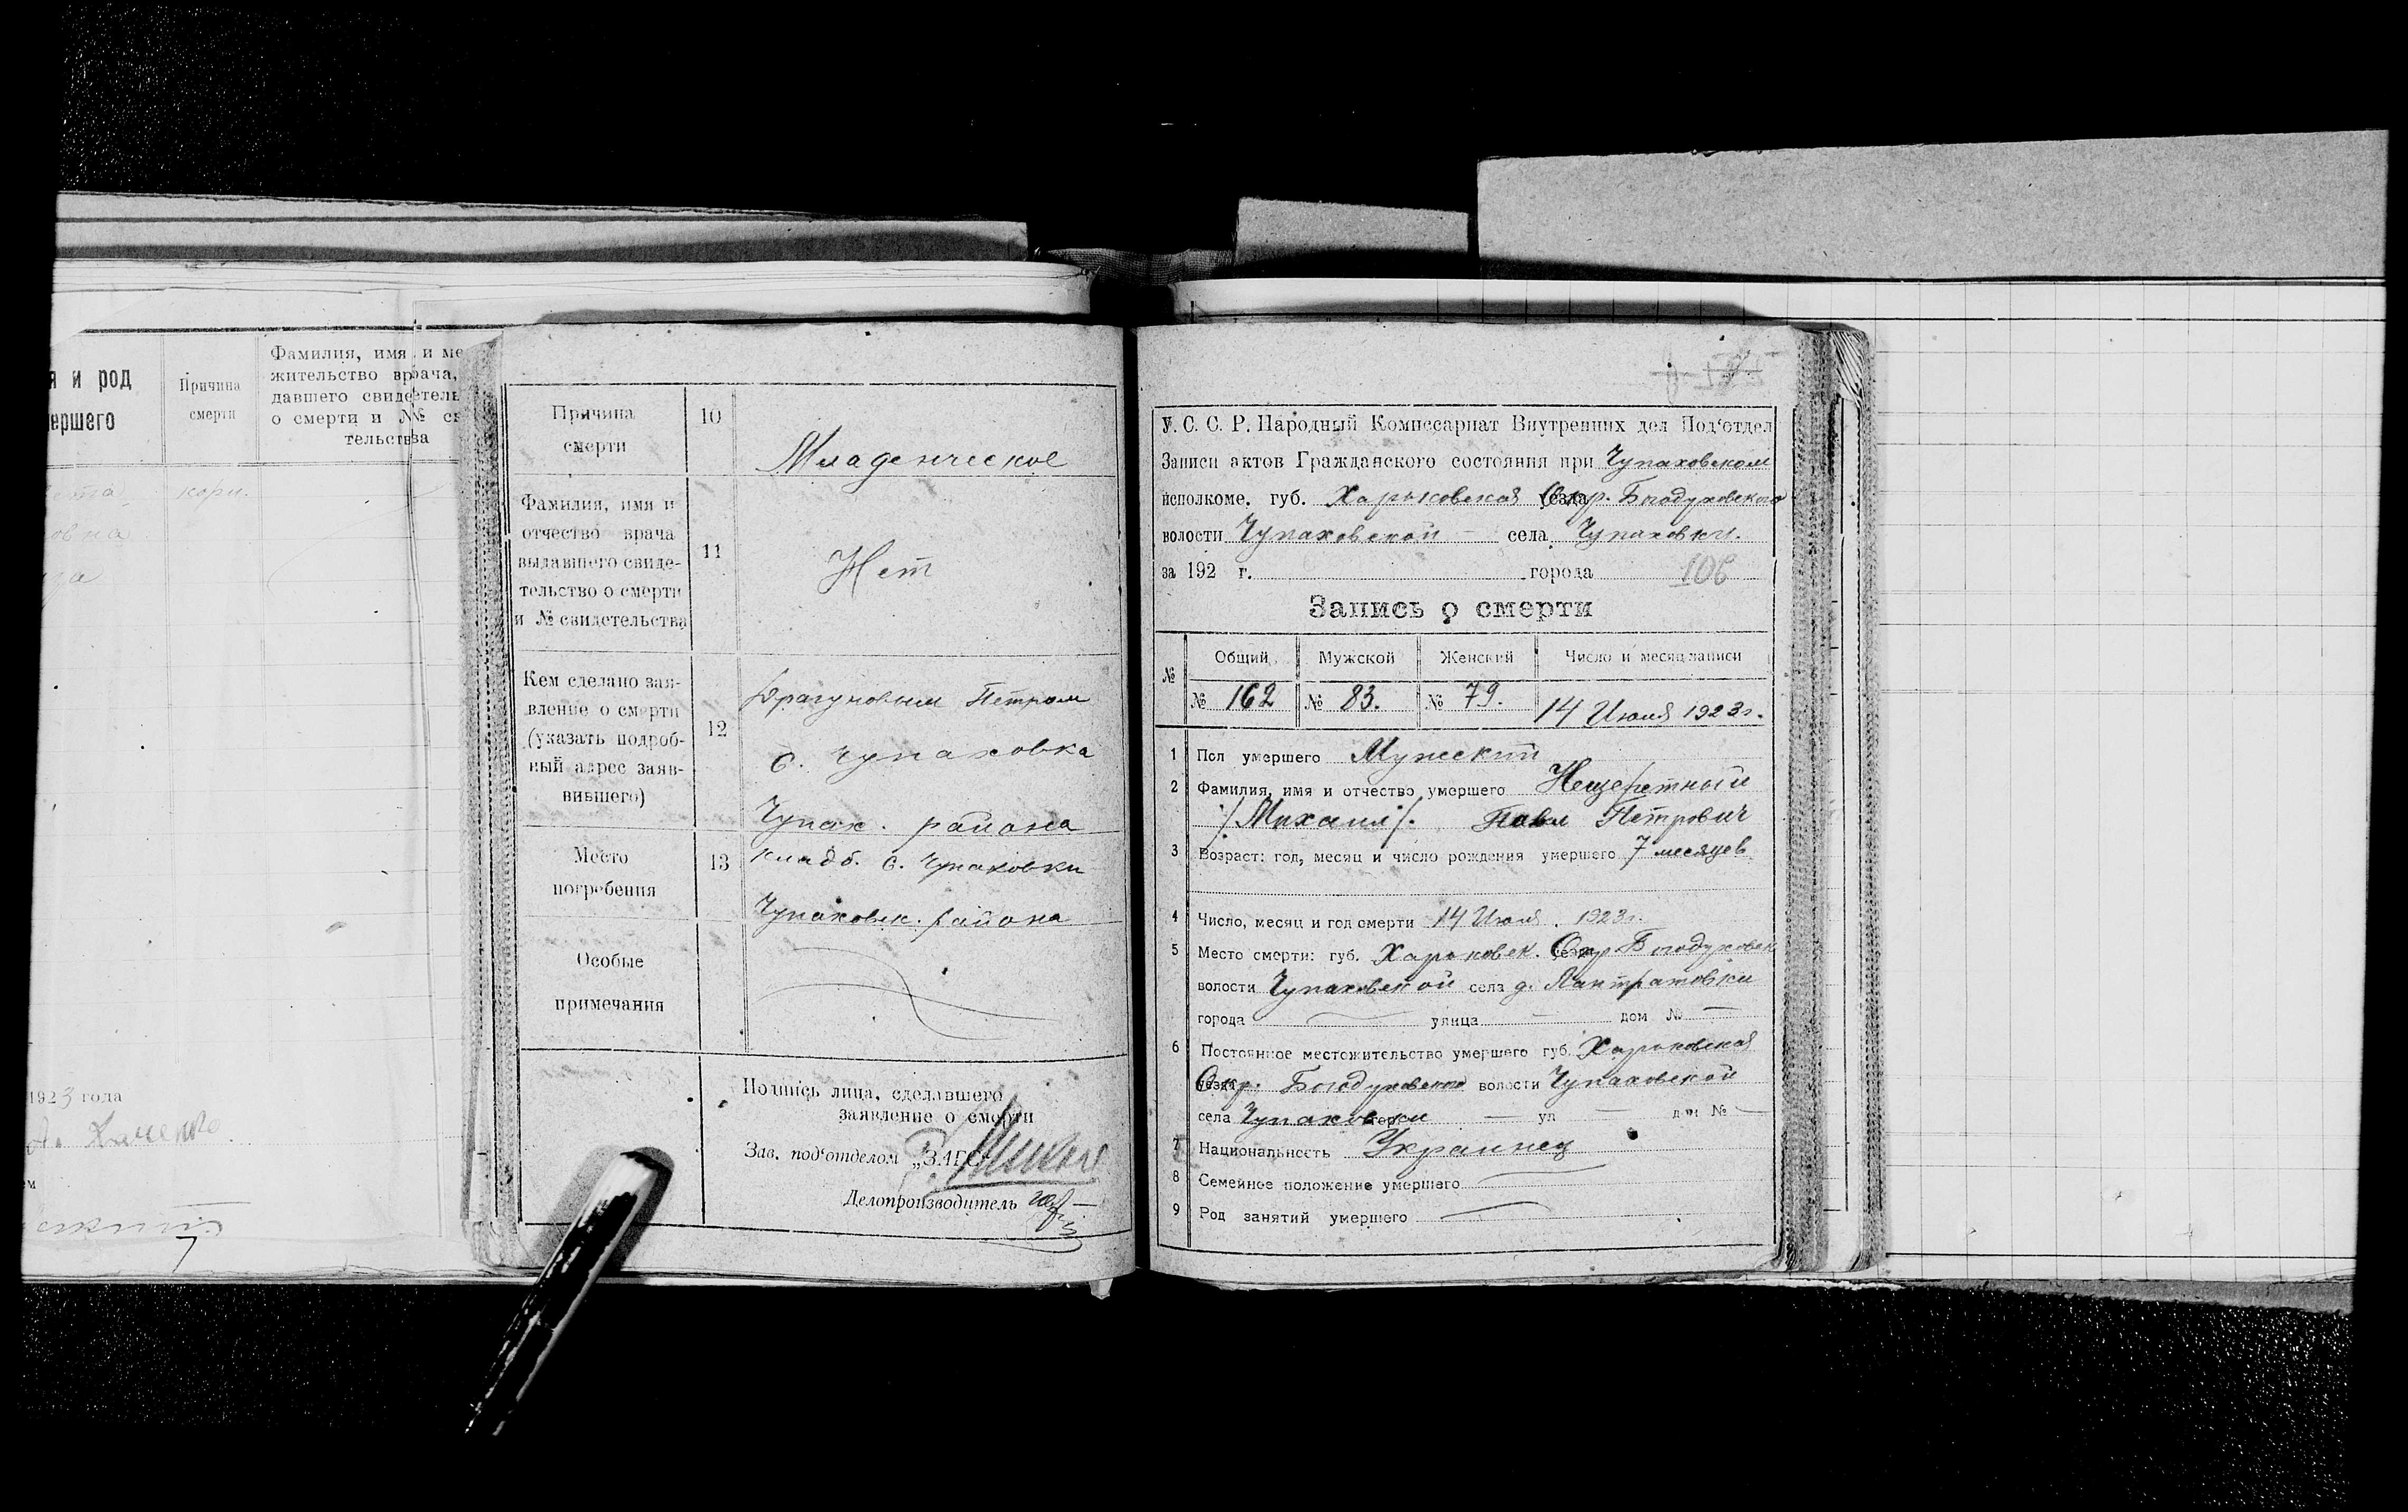 я и род
ершего
Причина
смерти
Фамилия, имя и ме
жительство врача,
давшего свидетель
о смерти и № св
тельства
ета
кори.
овна
1923 года
Причина
смерти
10
Младенческое
Фамилия, имя и
отчество врача
выдавшего свиде-
тельство о смерти
и № свидетельства
11
Нет
Кем сделано зая-
вление о смерти
(указать подроб-
ный адрес заяв-
вившего)
12
Драгуновым Петром
с. Чупаховка
Чупах. района
Место
погребения
13
кладб. с. Чупаховки
Чупаховск. района
Особые
примечания
Подпись лица, сделавшего
заявление о смерти
Зав. под'отделом „ЗАГС"
Делопроизводитель
У. С. С. Р. Народный Комиссариат Внутренних дел Под'отдел
Записи актов Гражданского состояния при Чупаховском
исполкоме. губ. Харьковская уезда Окр. Богодуховского
волости Чупаховской села Чупаховки.
за 192 г. города 106
Запись о смерти
№ Общий Мужской Женский Число и месяц записи
№ 162 № 83. № 79. 14 Июля 1923 г.
1 Пол умершего Мужский
2 Фамилия, имя и отчество умершего Нещеретный
/Михаил/. Павел Петрович
3 Возраст: год, месяц и число рождения умершего 7 месяцев
4 Число, месяц и год смерти 14 Июля 1923 г.
5 Место смерти: губ. Харьковск. уезда Окр Богодуховск
волости Чупаховской села д.
города улица дом №
6 Постоянное местожительство умершего губ. Харьковская
уезда Окр. Богодуховского волости Чупаховской
села Чупаховки гор. ул дом №
7 Национальность Украинец
8 Семейное положение умершего
9 Род занятий умершего